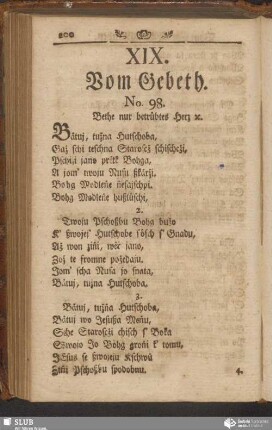 200
XIX.
Vom Gebeth.
No. 98.
Bethe nur betrübtes Hertz ꝛc.
Bätuj, tužna Hutschoba,
Gaž schi teschna Starosćž schischcži,
Pschizi jano prikk Bohga,
A jom' twoju Nusu skärži.
Bohg Modleńe nesajschpi,
Bohg Modleńe hußlüschi,
2.
Twoju Pschoßbu Boha buso
K' ßwojej' Hutschobe sösch s' Gnadu,
Až won ziṅi, wóć jano,
Zož te fromme požedaju.
Jom' scha Nusa jo snata,
Bätuj, tužna Hutschoba,
3.
Bätuj, tužna Hutschoba,
Bätuj wo Jesußa Mänu,
Sche Starosćži chisch s' Boka
Sswoio Jo Bohg groṅi k' tomu,
JEsus se ßwojeju Kschwü
Ziṅi Pschoßbu spodobnu.
4.
SLUB